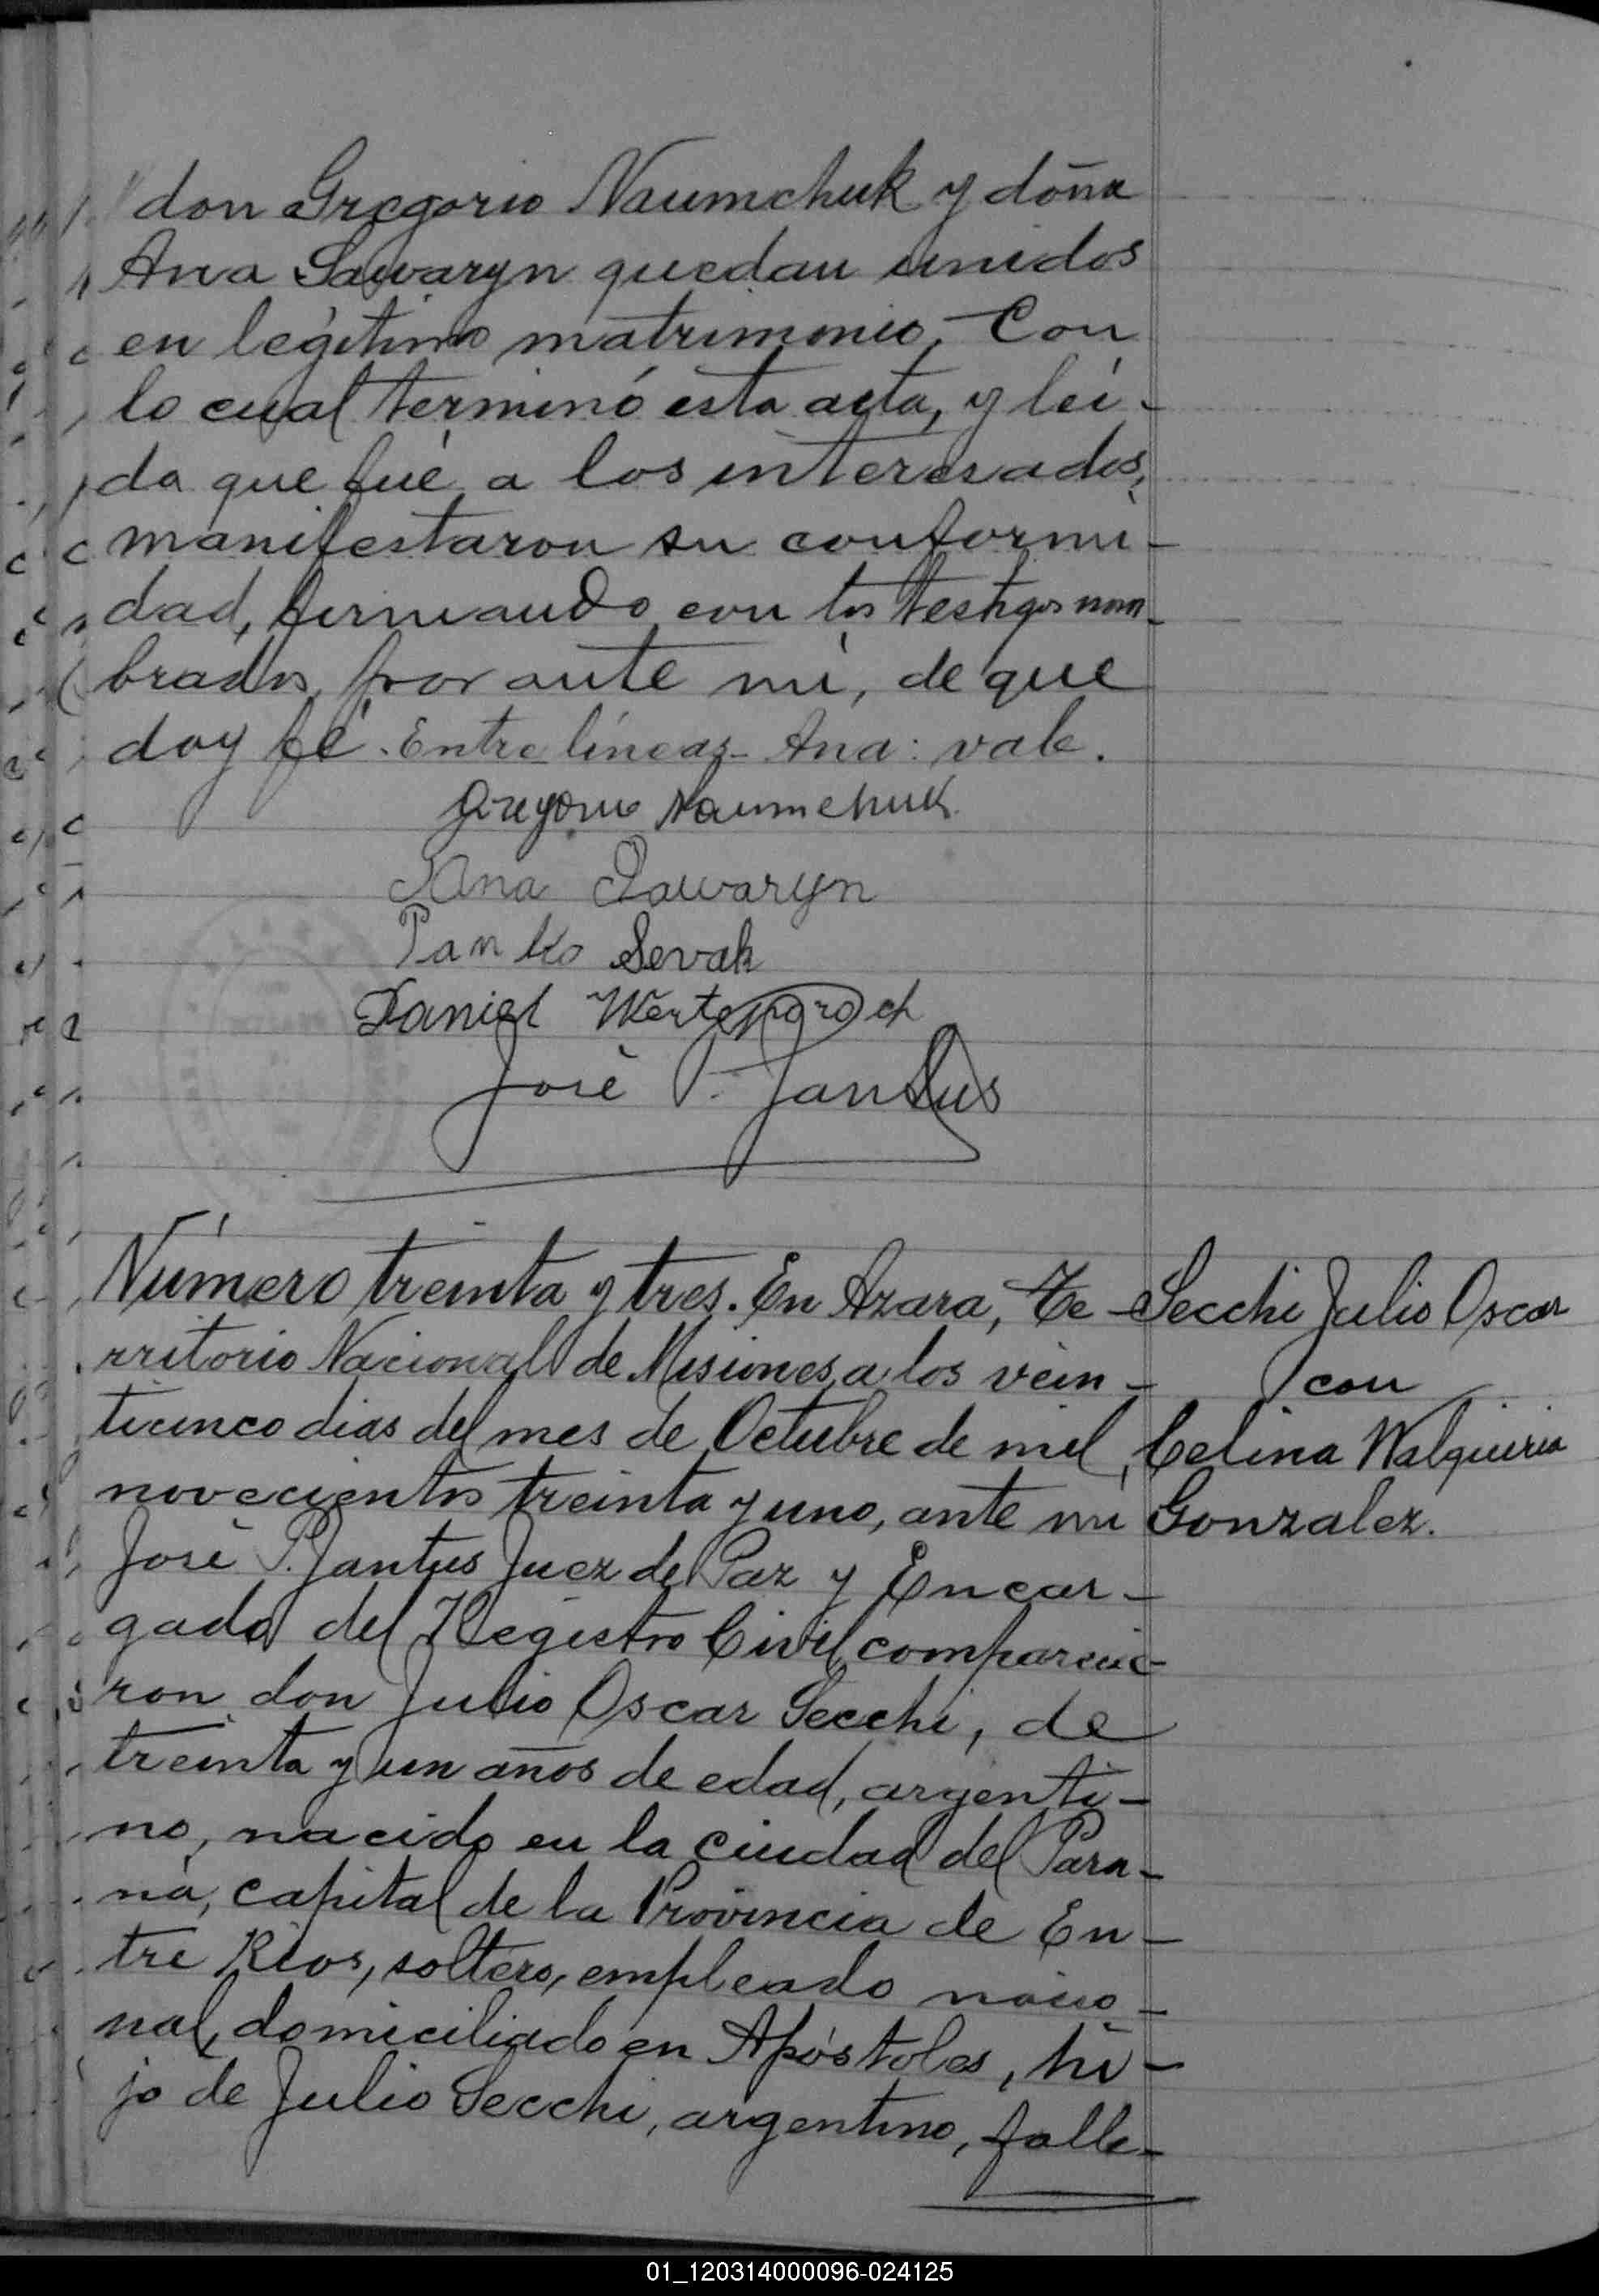 don Gregorio Naumchuk y doña
Ana Sawaryn quedan unidos
en legítimo matrimonio. Con
lo cual terminó esta acta, y leí-
da que fué a los interesados,
manifestaron su conformi-
dad, firmando con los testigos nom-
brados, por ante mí, de que
doy fé. Entre líneas - Ana: vale.
Gregorio Naumchuk
Ana Sawaryn
Panko Sevak
Daniel
José P. Jantus
Número treinta y tres. En Azara, Te-
rritorio Nacional de Misiones, a los vein-
ticinco dias del mes de Octubre de mil
novecientos treinta y uno, ante mi
José P. Jantus Juez de Paz y Encar-
gado del Registro Civil, comparecie-
ron don Julio Oscar Secchi, de
treinta y un años de edad, argenti-
no, nacido en la ciudad del Para-
ná, capital de la Provincia de En-
tre Rios, soltero, empleado nacio-
nal, domiciliado en Apóstoles, hi-
jo de Julio Secchi, argentino, falle-
Secchi Julio Oscar
con
Celina Walquiria
Gonzalez.
01_120314000096-024125